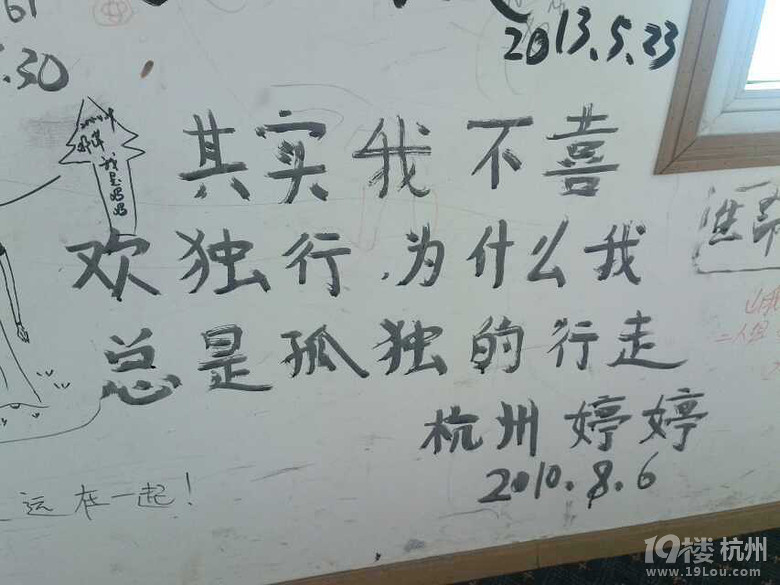 61
2013.5.23
.30
我是鸣鸣
其实我不喜
欢独行,为什么我
总是孤独的行走
杭州 婷婷
2010.8.6
二人组
远在一起!
19楼 杭州
www.19Lou.com